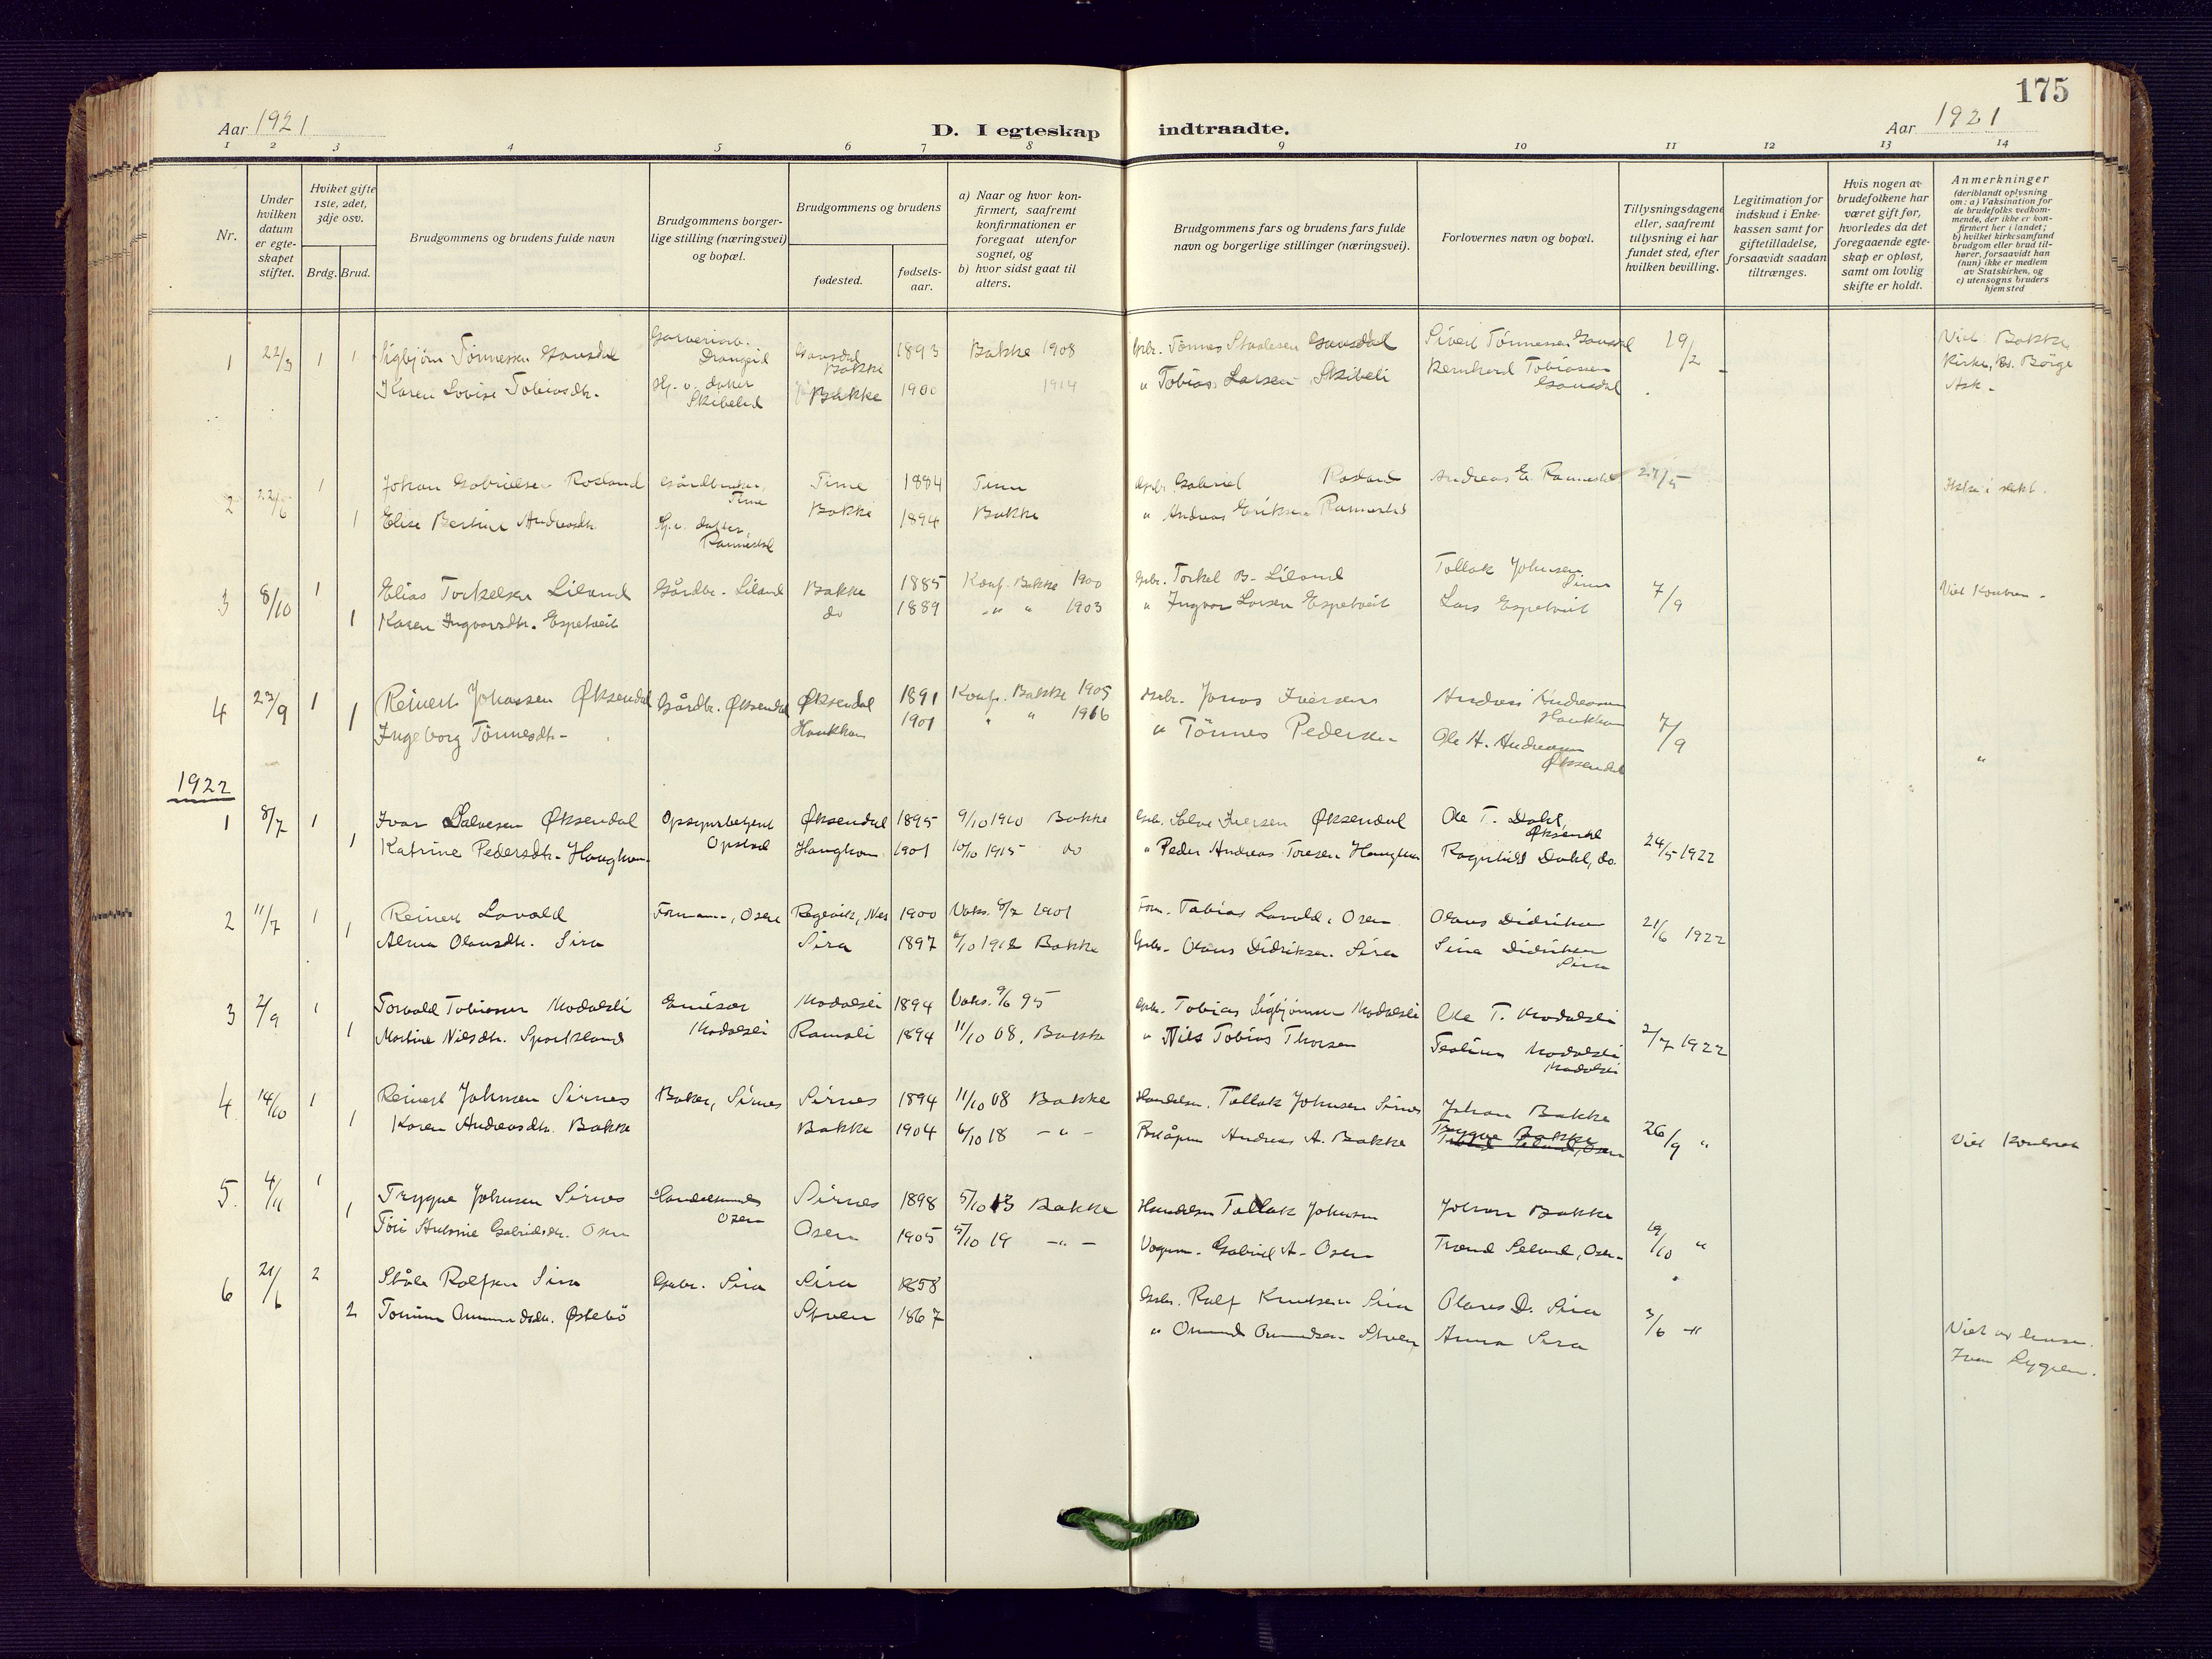 175
Aar 1921
D. I egteskap indtraadte.
Aar 1921
1 2 3 4 5 6 7 8 9 10 11 12 13 14
Nr.
Under
hvilken
datum
er egte-
skapet
stiftet.
Hviket gifte
1ste, 2det,
3dje osv.
Brdg. Brud.
Brudgommens og brudens fulde navn
Brudgommens borger-
lige stilling (næringsvei)
og bopæl.
Brudgommens og brudens
fødested.
fødsels-
aar.
a) Naar og hvor kon-
firmert, saafremt
konfirmationen er
foregaat utenfor
sognet, og
b) hvor sidst gaat til
alters.
Brudgommens fars og brudens fars fulde
navn og borgerlige stillinger (næringsvei).
Forlovernes navn og bopæl.
Tillysningsdagene
eller, saafremt
tillysning ei har
fundet sted, efter
hvilken bevilling.
Legitimation for
indskud i Enke-
kassen samt for
giftetilladelse,
forsaavidt saadan
tiltrænges.
Hvis nogen av
brudefolkene har
været gift før,
hvorledes da det
foregaaende egte-
skap er opløst,
samt om lovlig
skifte er holdt.
Anmerkninger
(deriblandt oplysning
om: a) Vaksination for
de brudefolks vedkom-
mende, der ikke er kon-
firmert her i landet;
b) hvilket kirkesamfund
brudgom eller brud til-
hører, forsaavidt han
(hun) ikke er medlem
av Statskirken, og
c) utensogns bruders
hjemsted
1 22/3 1 1 Sigbjörn Tönnessen Gausdal Drangeid Gausdal Bakke 1893 Bakke 1908 Gbr. Tönnes Staalesen Gausdal Sivert Tönnessen Gausdal 19/2 Viet. Bakke
Karen Lovise Tobiasdtr. Hj. v. datter Skibeli Bakke 1900 1914 " Tobias Larsen Skibeli Bernhard Tobiassen Gausdal Kirke, Börge
Ask.
2 22/6 1 Johan Gabrielsen Rosland Gårdbruker, Time Time 1884 Time Gbr. Gabriel Rosland Andreas E. Rannestad 27/5
1 Elise Bertine Andreasdtr. Hj. v. datter, Rannestad Bakke 1894 Bakke " Andreas Eriksen Rannestad
3 8/10 1 Elias Torkelsen Liland Gårdbr. Liland Bakke 1885 Konf. Bakke 1900 Gbr. Torkel B. Liland Tollak Johnsen Sirnes 7/9
1 Karen Ingvarsdtr. Espetveit do 1889 " " 1903 " Ingvar Larsen Espetveit Lars Espetveit
4 23/9 1 Reinert Johassen Øksendal Gårdbr. Øksendal Øksendal 1891 Konf. Bakke 1905 Gbr. Jonas Iversen Andreas Andreassen Haukhom 7/9
1 Ingeborg Tönnesdtr. Haukhom 1901 " " 1916 " Tönnes Pedersen Ole H. Andreassen Øksendal "
1922
1 8/7 1 Ivar Salvesen Øksendal Opsynsbetjent Opstad Øksendal 1895 9/10 1910 Bakke Gbr. Salve Iversen Øksendal Ole T. Dahl, Øksendal
1 Katrine Pedersdtr. Haughom Haughom 1901 10/10 1915 do " Peder Andreas Toresen Haughom Ragnhild Dahl, do. 24/5 1922
2 11/7 1 Reinert Lavold Formann, Osen 1900 Vaks. 1901 Form. Tobias Lavold, Osen Olaus Didriksen 21/6 1922
1 Alma Olausdtr. Sira Sira 1897 6/10 1912 Bakke Gbr. Olaus Didriksen Sira Sina Didriksen Sira
3 2/9 1 Torvald Tobiassen Modalsli Emisær Modalsli Modalsli 1894 Vaks. 9/6 95 Gbr. Tobias Sigbjörnsen Modalsli Ole T. Modalsli
1 Martine Nilsdtr. Spurkland Ramsli 1894 11/10 08, Bakke " Nils Tobias Thorsen Modalsli Modalsli 2/7 1922
4 14/10 1 Reinert Johnsen Sirnes Baker, Sirnes Sirnes 1894 11/10 08 Bakke Handelsm. Tollak Johnsen Sirnes Johan Bakke
1 Karen Andreasdtr. Bakke Bakke 1904 6/10 18 – " – Poståpner Andreas A. Bakke Trygve Bakke 26/9 "
5. 4/11 1 Trygve Johnsen Sirnes Handelsmann Osen Sirnes 1898 5/10 13 Bakke Handelsm Tollak Johnsen Johan Bakke
1 Gabrielsdtr. Osen Osen 1905 5/10 19 – " – Vognm. Gabriel A. Osen Trond Seland, Osen 19/10 "
6 21/6 2 Ståle Rolfsen Sira Gbr. Sira Sira 1858 Gbr. Rolf Knutsen Sira Olaus D. Sira
2 Østebö 1867 " Anna Sira 3/6 – "